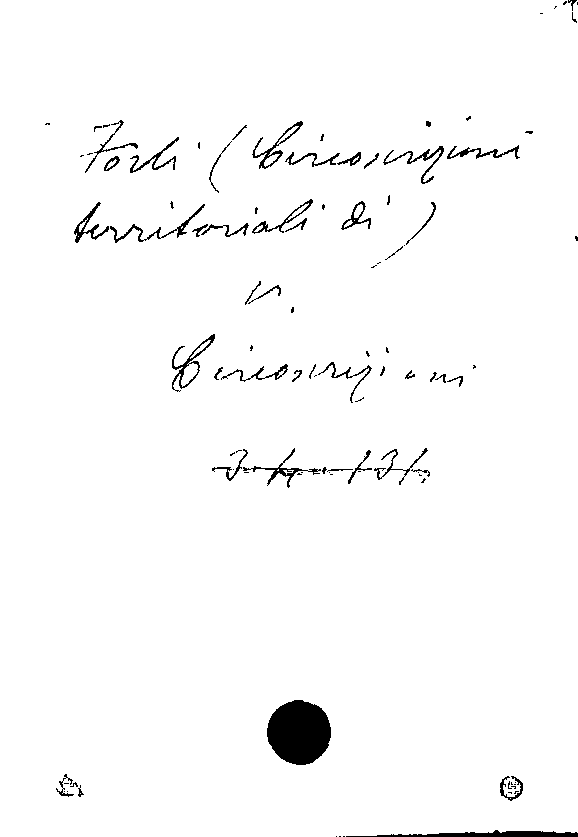 Forlì (Circoscrizioni
territoriali di)
v.
Circoscrizioni